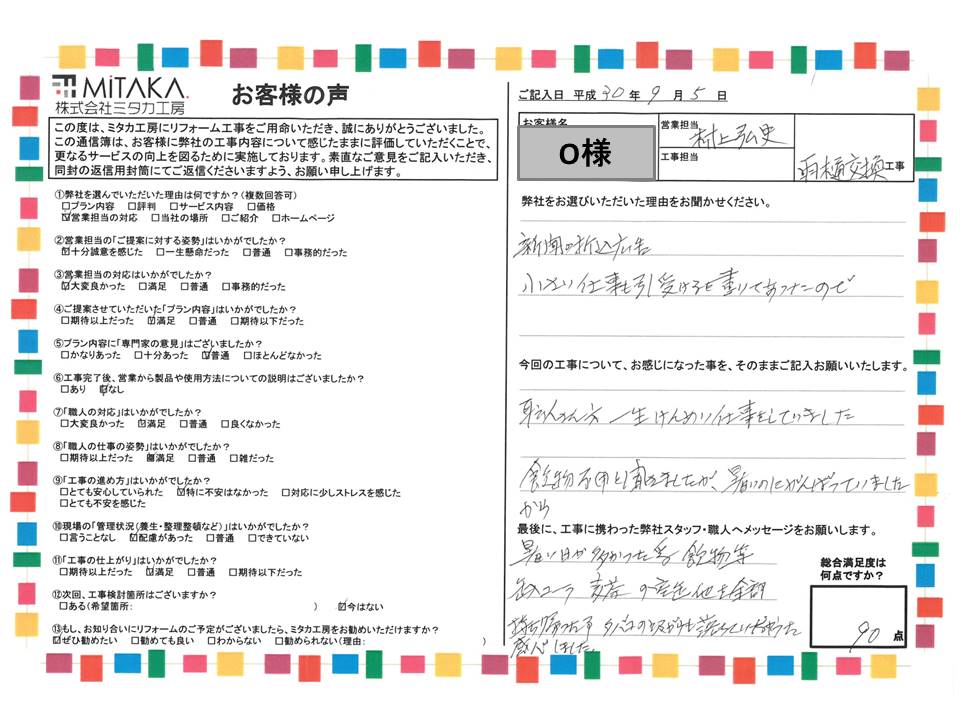 MiTAKA.
株式会社ミタカ工房
お客様の声
この度は、ミタカ工房にリフォーム工事をご用命いただき、誠にありがとうございました。
この通信簿は、お客様に弊社の工事内容について感じたままに評価していただくことで、
更なるサービスの向上を図るために実施しております。素直なご意見をご記入いただき、
同封の返信用封筒にてご返信くださいますよう、お願い申し上げます。
①弊社を選んでいただいた理由は何ですか?(複数回答可)
□プラン内容 □評判 □サービス内容 □価格
☑営業担当の対応 □当社の場所 □ご紹介 □ホームページ
②営業担当の「ご提案に対する姿勢」はいかがでしたか?
☑十分誠意を感じた □一生懸命だった □普通 □事務的だった
③営業担当の対応はいかがでしたか?
☑大変良かった □満足 □普通 □事務的だった
④ご提案させていただいた「プラン内容」はいかがでしたか?
□期待以上だった ☑満足 □普通 □期待以下だった
⑤プラン内容に「専門家の意見」はございましたか?
□かなりあった □十分あった ☑普通 □ほとんどなかった
⑥工事完了後、営業から製品や使用方法についての説明はございましたか?
□あり ☑なし
⑦「職人の対応」はいかがでしたか?
□大変良かった ☑満足 □普通 □良くなかった
⑧「職人の仕事の姿勢」はいかがでしたか?
□期待以上だった ☑満足 □普通 □雑だった
⑨「工事の進め方」はいかがでしたか?
□とても安心していられた ☑特に不安はなかった □対応に少しストレスを感じた
□とても不安を感じた
⑩現場の「管理状況(養生・整理整頓など)」はいかがでしたか?
□言うことなし ☑配慮があった □普通 □できていない
⑪「工事の仕上がり」はいかがでしたか?
□期待以上だった ☑満足 □普通 □期待以下だった
⑫次回、工事検討箇所はございますか?
□ある(希望箇所: ) ☑今はない
⑬もし、お知り合いにリフォームのご予定がございましたら、ミタカ工房をお勧めいただけますか?
☑ぜひ勧めたい □勧めても良い □わからない □勧められない(理由: )
ご記入日 平成 30 年 9 月 5 日
お客様名
O様
営業担当 村上弘史
工事担当
雨樋交換工事
弊社をお選びいただいた理由をお聞かせください。
新聞の折込広告
小さい仕事も引受けると書いてあったので
今回の工事について、お感じになった事を、そのままご記入お願いいたします。
職人さん方 一生けんめい仕事をしていました
飲物不用と
暑いのにがんばっていました
から
最後に、工事に携わった弊社スタッフ・職人へメッセージをお願いします。
暑い日が多かった 飲物等
缶コーラ
感心しました。
総合満足度は
何点ですか?
90 点